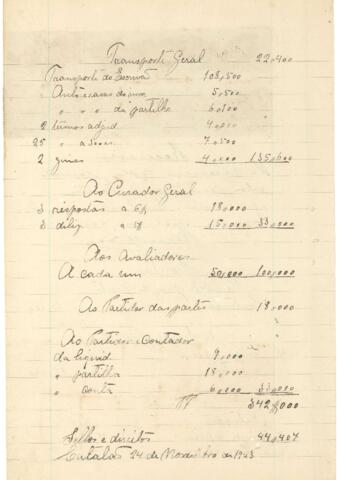 Transporte Geral 22,400
Transporte do Escrivão 108,500
5,500
" " " da partilha 6,100
2 termos adjud. 4,000
25 " 7,500
2 guias 4,000 135,600
Ao Curador Geral
3 respostas a 6$ 18,000
3 dilig a 5$ 15,000 33,000
Aos Avaliadores
A cada um 50,000 100,000
Ao Partidor das partes 18,000
Ao Partidor e Contador
da liquid 9,000
" partilha 18,000
" conta 6,000 33,000
342,000
Sellos e direitos 44,404
Catalão 24 de Novembro de 1923